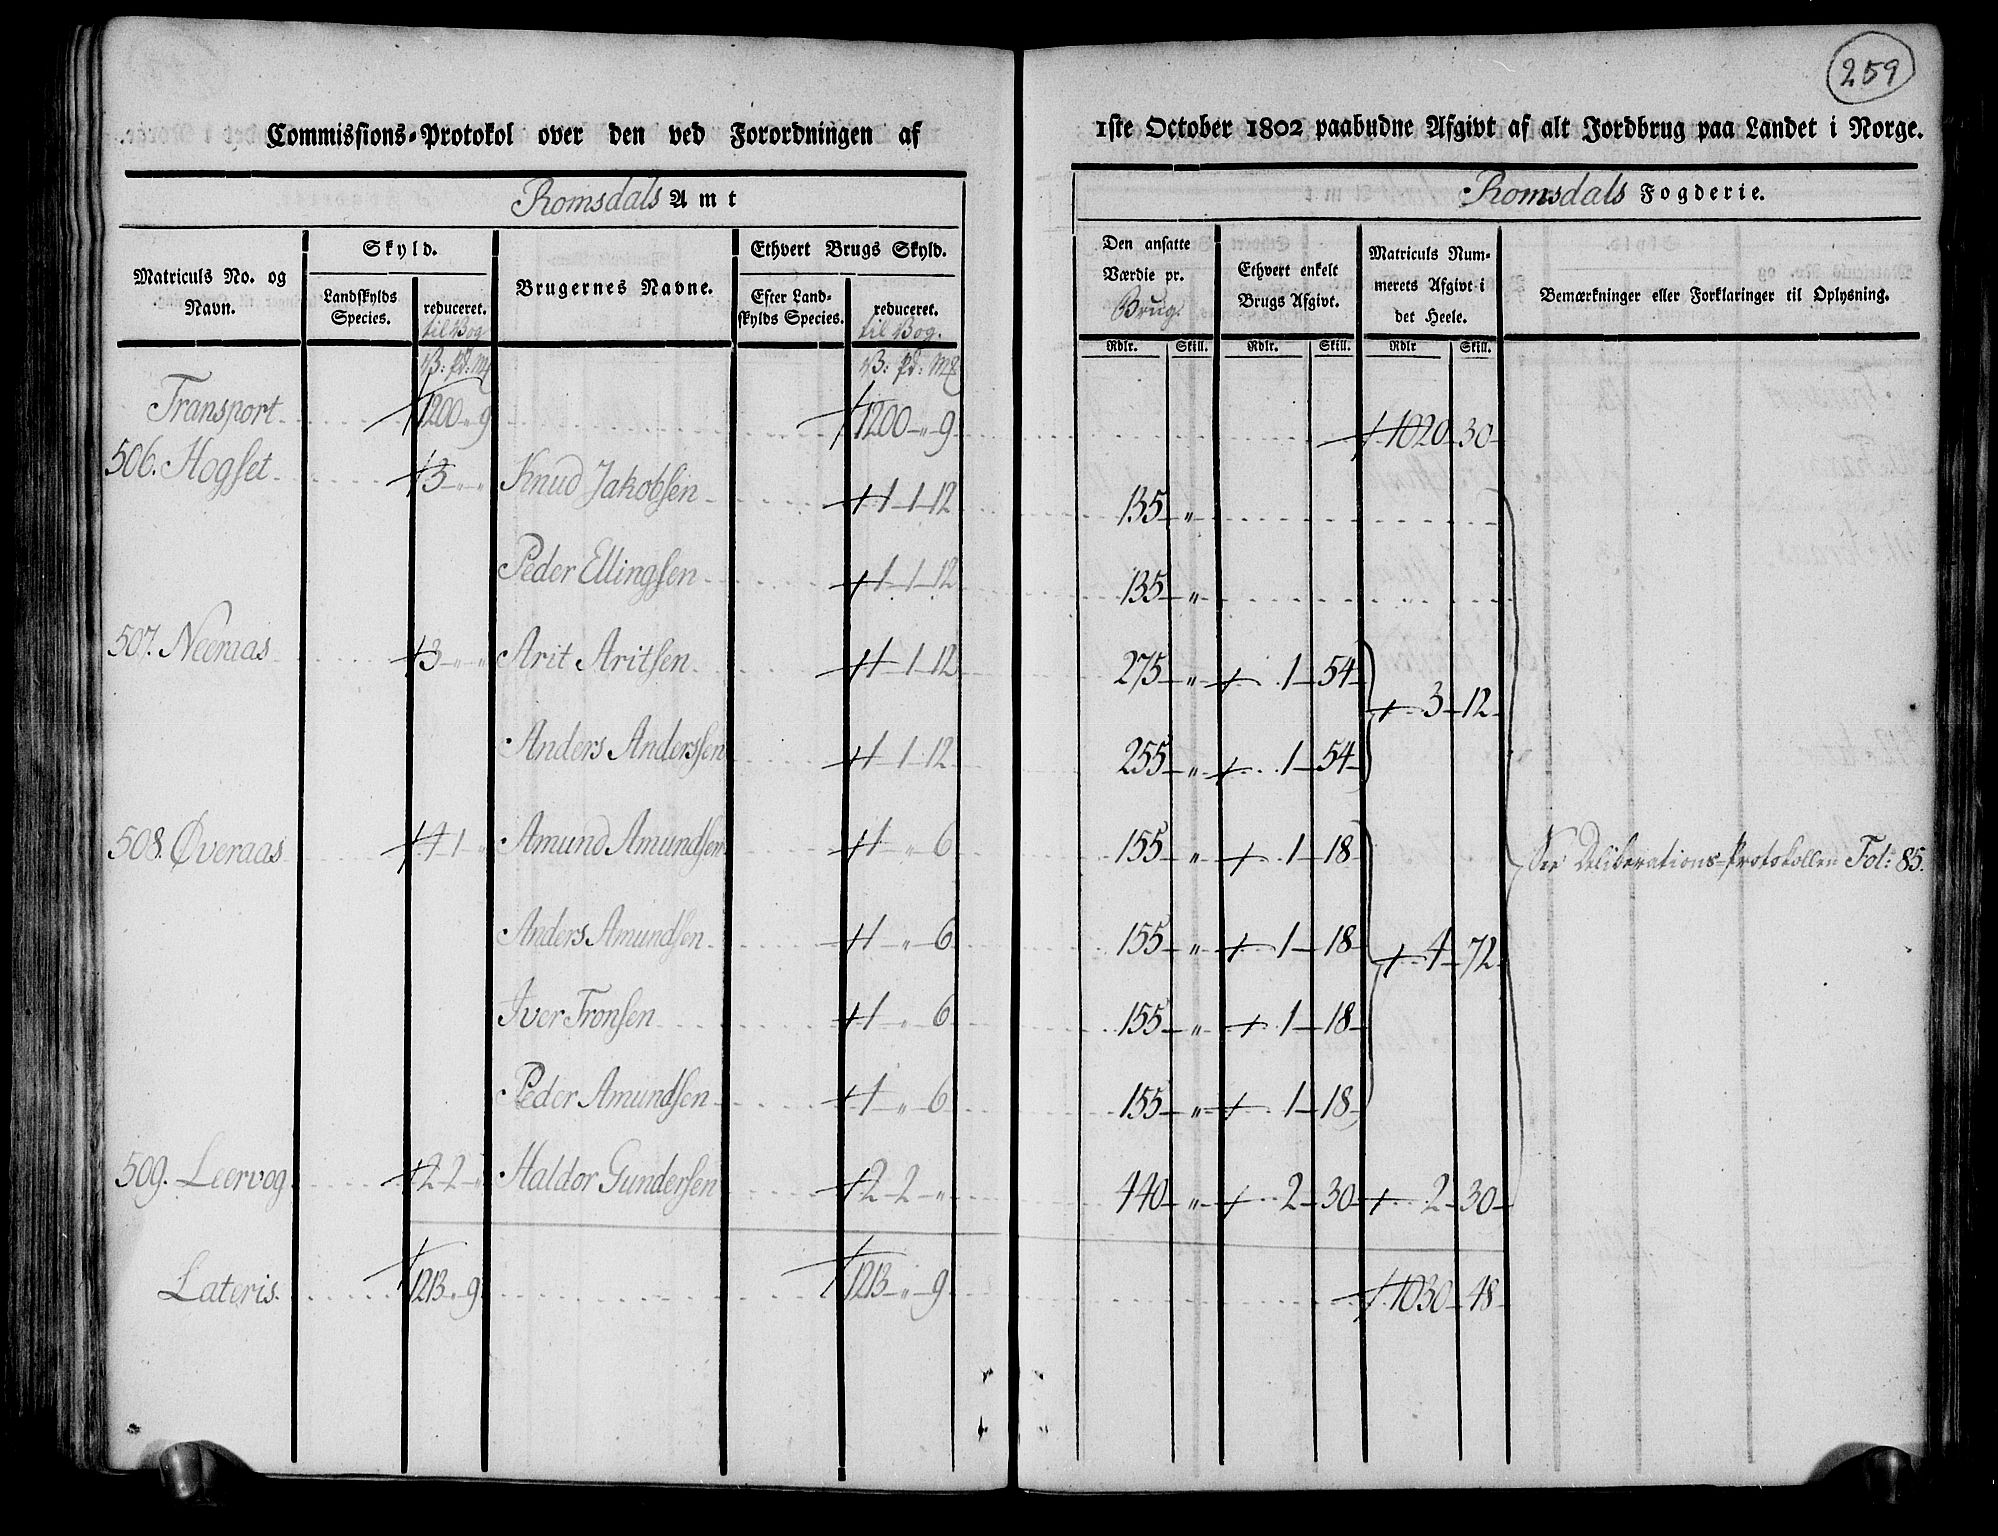 259
Commissions-Protokol over den ved Forordningen af 1ste October 1802 paabudne Afgivt af alt Jordbrug paa Landet i Norge.
Romsdals Amt
Romsdals Fogderie.
Matriculs No. og Navn.
Skyld.
Landskylds Species.
reduceret. til Bog
Brugernes Navne.
Ethvert Brugs Skyld.
Efter Landskylds Species.
reduceret. til Bog.
Den ansatte Værdie pr. Brug.
Ethvert enkelt Brugs Afgivt.
Matriculs Nummerets Afgivt i det Heele.
Bemærkninger eller Forklaringer til Oplysning.
Rdlr. Skill. Rdlr. Skill. Rdlr Skill.
Transport 1200 " 9 1200 " 9 1020 30
506. Hogset 3 " " Knud Jakobsen 1 1 12 135 "
Peder Ellingsen 1 1 12 135 "
507. Neeraas 3 " " Arit Aritsen 1 1 12 275 " 1 54
3 12
Anders Anderssen 1 1 12 255 " 1 54
508. Øveraas 4 1 " Amund Amundsen 1 " 6 155 " 1 18
See Deliberations-Protokollen Fol: 85.
Anders Amundsen 1 " 6 155 " 1 18 4 72
Iver Tronsen 1 " 6 155 " 1 18
Peder Amundsen 1 " 6 155 " 1 18
509. Leervog 2 2 " Haldor Gundersen 2 2 " 440 " 2 30 2 30
Lateris. 1213 " 9 1213 " 9 1030 48